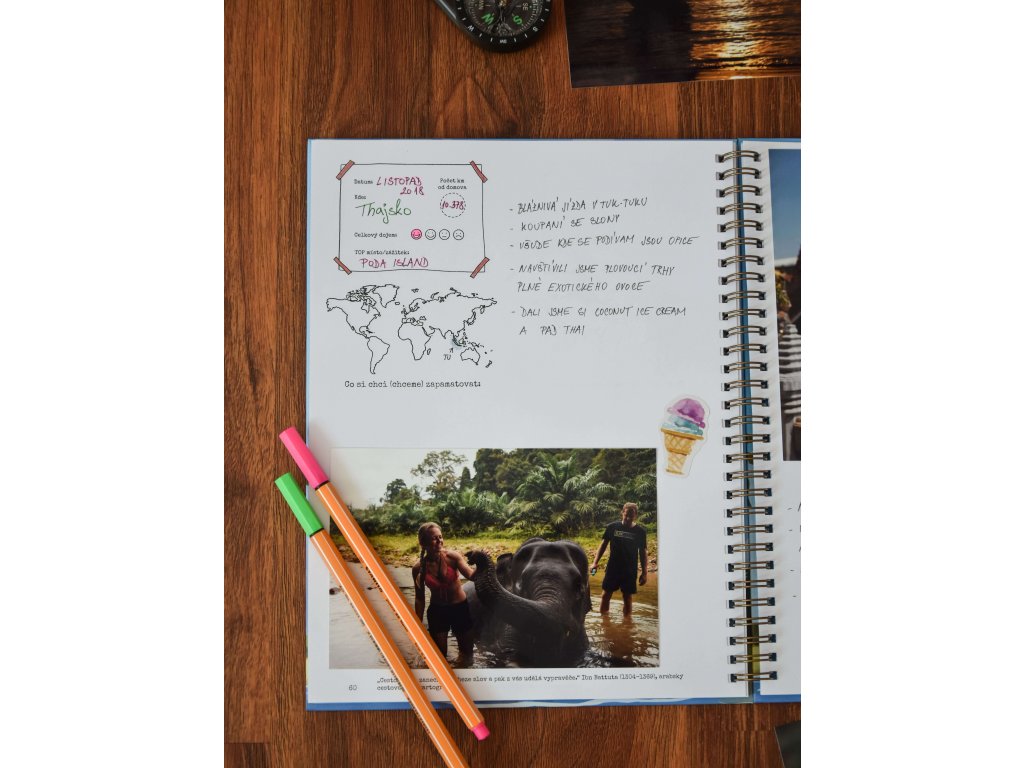 Datum: LISTOPAD
2018
Počet km
od domova
10.378
Kde:
Thajsko
Celkový dojem:
TOP místo/zážitek:
PODA ISLAND
TU
Co si chci (chceme) zapamatovat:
- BLÁZNIVÁ JÍZDA V TUK-TUKU
- KOUPANÍ SE SLONY
- VŠUDE KDE SE PODÍVAM JSOU OPICE
- NAVŠTÍVILI JSME PLOVOUCÍ TRHY
PLNÉ EXOTICKÉHO OVOCE
- DALI JSME SI COCONUT ICE CREAM
A PAD THAI
slov a pak z vás udělá vypravěče." Ibn Battuta (1304-1369), arabský
60
W
S
SE